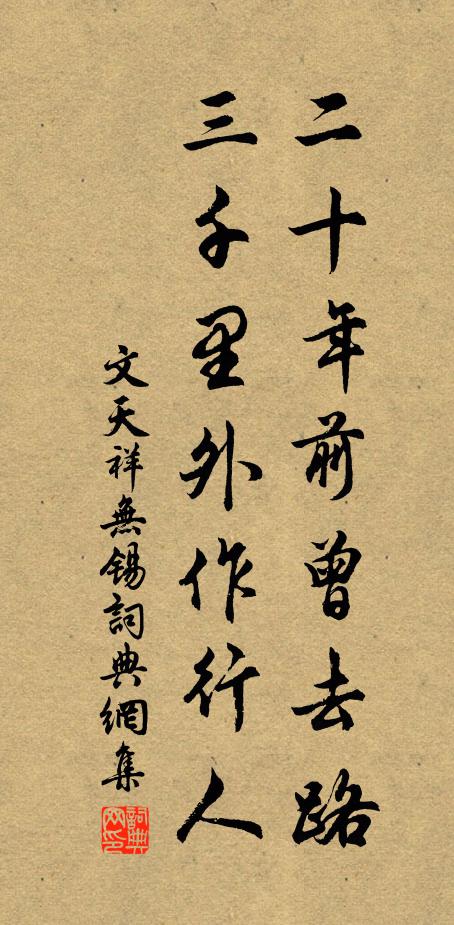 二十年前曾去路
三千里外作行人
文天祥無錫詞典網集
詞典網印